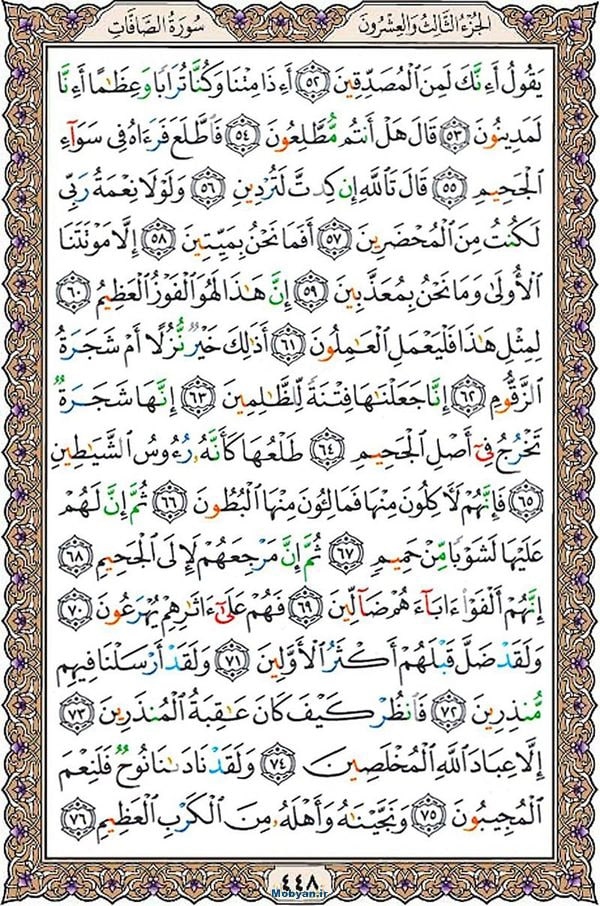 الجزء الثالث والعشرون سورة الصافات
يَقُولُ أَءِنَّكَ لَمِنَ الْمُصَدِّقِينَ ٥٢ أَءِذَا مِتْنَا وَكُنَّا تُرَابًا وَعِظَامًا أَءِنَّا
لَمَدِينُونَ ٥٣ قَالَ هَلْ أَنتُم مُّطَّلِعُونَ ٥٤ فَاطَّلَعَ فَرَءَاهُ فِي سَوَآءِ
الْجَحِيمِ ٥٥ قَالَ تَاللَّهِ إِن كِدتَّ لَتُرْدِينِ ٥٦ وَلَوْلَا نِعْمَةُ رَبِّي
لَكُنتُ مِنَ الْمُحْضَرِينَ ٥٧ أَفَمَا نَحْنُ بِمَيِّتِينَ ٥٨ إِلَّا مَوْتَتَنَا
الْأُولَىٰ وَمَا نَحْنُ بِمُعَذَّبِينَ ٥٩ إِنَّ هَٰذَا لَهُوَ الْفَوْزُ الْعَظِيمُ ٦٠
لِمِثْلِ هَٰذَا فَلْيَعْمَلِ الْعَامِلُونَ ٦١ أَذَٰلِكَ خَيْرٌ نُّزُلًا أَمْ شَجَرَةُ
الزَّقُّومِ ٦٢ إِنَّا جَعَلْنَاهَا فِتْنَةً لِّلظَّالِمِينَ ٦٣ إِنَّهَا شَجَرَةٌ
تَخْرُجُ فِيٓ أَصْلِ الْجَحِيمِ ٦٤ طَلْعُهَا كَأَنَّهُ رُءُوسُ الشَّيَاطِينِ
٦٥ فَإِنَّهُمْ لَآكِلُونَ مِنْهَا فَمَالِـُٔونَ مِنْهَا الْبُطُونَ ٦٦ ثُمَّ إِنَّ لَهُمْ
عَلَيْهَا لَشَوْبًا مِّنْ حَمِيمٍ ٦٧ ثُمَّ إِنَّ مَرْجِعَهُمْ لَإِلَى الْجَحِيمِ ٦٨
إِنَّهُمْ أَلْفَوْا ءَابَآءَهُمْ ضَآلِّينَ ٦٩ فَهُمْ عَلَىٰٓ ءَاثَارِهِمْ يُهْرَعُونَ ٧٠
وَلَقَدْ ضَلَّ قَبْلَهُمْ أَكْثَرُ الْأَوَّلِينَ ٧١ وَلَقَدْ أَرْسَلْنَا فِيهِم
مُّنذِرِينَ ٧٢ فَانظُرْ كَيْفَ كَانَ عَاقِبَةُ الْمُنذَرِينَ ٧٣
إِلَّا عِبَادَ اللَّهِ الْمُخْلَصِينَ ٧٤ وَلَقَدْ نَادَانَا نُوحٌ فَلَنِعْمَ
الْمُجِيبُونَ ٧٥ وَنَجَّيْنَاهُ وَأَهْلَهُ مِنَ الْكَرْبِ الْعَظِيمِ ٧٦
٤٤٨
Mobyan.ir